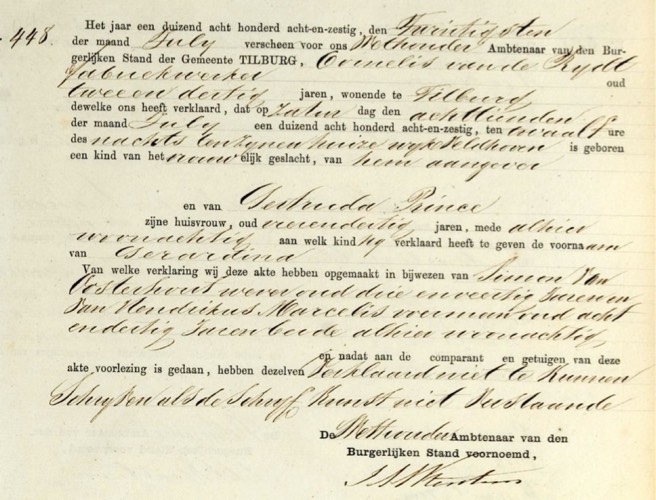 448.
Het jaar een duizend acht honderd acht-en-zestig, den Twintigsten
der maand July verscheen voor ons Wethouder Ambtenaar van den Bur-
gerlijken Stand der Gemeente TILBURG, Cornelis van de Rydt
fabriekwerker oud
twee en dertig jaren, wonende te Tilburg
dewelke ons heeft verklaard, dat op Zatur dag den achttienden
der maand July een duizend acht honderd acht-en-zestig, ten twaalf ure
des nachts ten zynen huize wyk Veldhoven is geboren
een kind van het vrouwelijk geslacht, van hem aangever
en van Gertruda Prince
zijne huisvrouw, oud vierendertig jaren, mede alhier
woonachtig aan welk kind hy verklaard heeft te geven de voornaam
van Gerardina
Van welke verklaring wij deze akte hebben opgemaakt in bijwezen van Simon Van
Oosterhout wever oud drie en veertig Jaren en
Van Hendrikus Marcelis voerman oud acht
en dertig Jaren beide alhier woonachtig,
en nadat aan de comparant en getuigen van deze
akte voorlezing is gedaan, hebben dezelven Verklaard niet te kunnen
Schryven als de Schryf Kunst niet Verstaande
De Wethouder Ambtenaar van den
Burgerlijken Stand voornoemd,